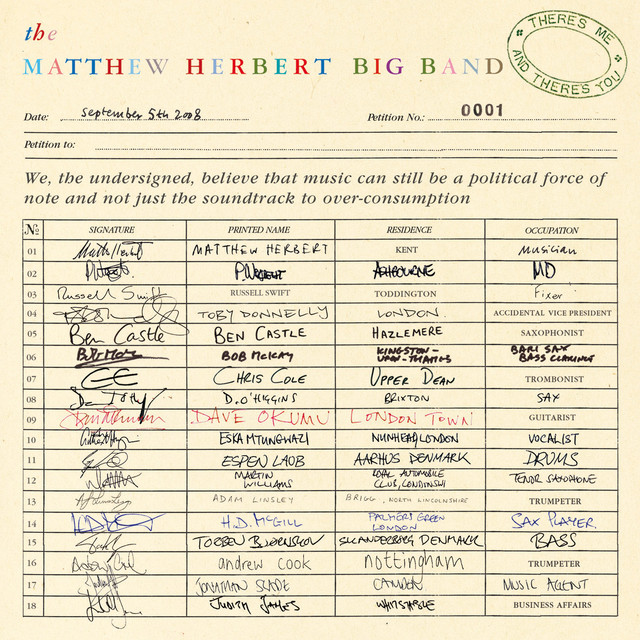 the
MATTHEW HERBERT BIG BAND
THERE'S ME
AND THERE'S YOU
Date: September 5th 2008 Petition No.: 0001
Petition to:
We, the undersigned, believe that music can still be a political force of
note and not just the soundtrack to over-consumption
No SIGNATURE PRINTED NAME RESIDENCE OCCUPATION
01 MATTHEW HERBERT KENT Musician
02 P.WRIGHT ASHBOURNE MD
03 Russell Swift RUSSELL SWIFT TODDINGTON Fixer
04 TOBY DONNELLY LONDON. ACCIDENTAL VICE PRESIDENT
05 Ben Castle BEN CASTLE HAZLEMERE SAXOPHONIST
06 BOB McKAY KINGSTON-UPON-THAMES BARI SAX BASS CLARINET
07 CHRIS COLE UPPER DEAN TROMBONIST
08 D.O'HIGGINS BRIXTON SAX
09 DAVE OKUMU LONDON TOWN GUITARIST
10 ESKA MTUNGWAZI NUNHEAD, LONDON VOCALIST
11 ESPEN LAUB AARHUS DENMARK DRUMS
12 MARTIN WILLIAMS AUTOMOBILE CLUB, TENOR SAXOPHONE
13 ADAM LINSLEY BRIGG, NORTH LINCOLNSHIRE TRUMPETER
14 H.D. McGILL PALMERS GREEN LONDON SAX PLAYER
15 TORBEN BJØRNSKOV SKANDERBORG DENMARK BASS
16 andrew cook nottingham TRUMPETER
17 JONATHAN SLADE CAMDEN MUSIC AGENT
18 JUDITH JAMES WHITSTABLE BUSINESS AFFAIRS